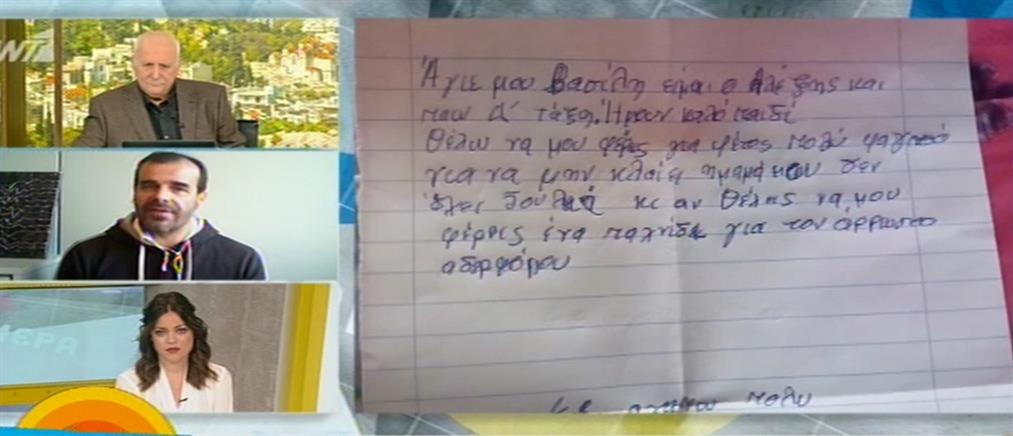 ANT1
ΜΕΡΑ
Άγιε μου Βασίλη είμαι ο Αλέξης και
παω Α' τάξη. Ήμουν καλό παιδί
Θέλω να μου φέρις για φέτος πολύ φαγητό
για να μην κλαίει η μαμά μου δεν
έχει δουλιά κι αν θέλης να μου
φέρης ένα παχνίδι για τον άρρωστο
αδερφόμου
σε αγαπαω πολυ